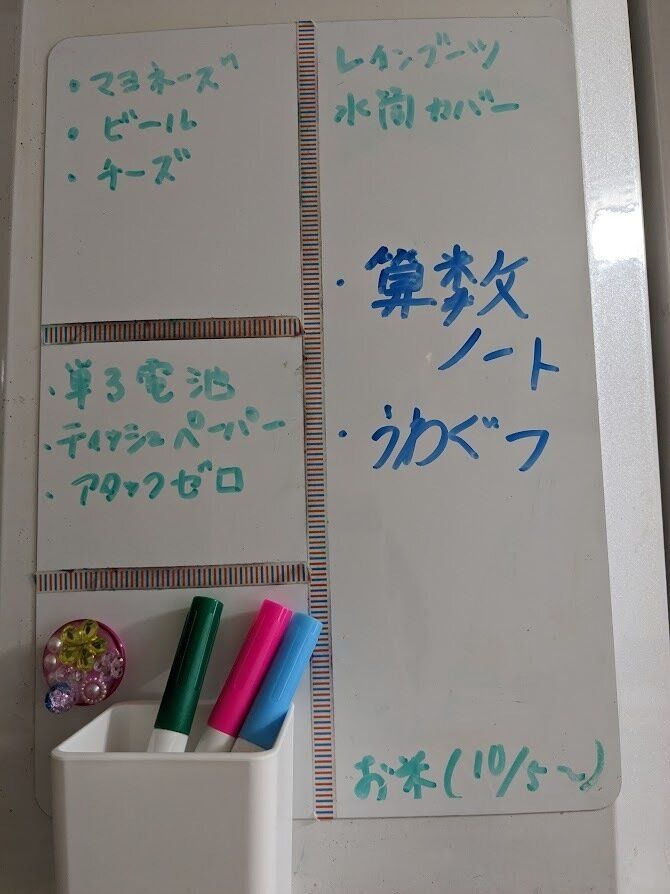 ・マヨネーズ
・ビール
・チーズ
・単3電池
・ティッシュペーパー
・アタックゼロ
レインブーツ
水筒カバー
・算数
ノート
・うわぐつ
お米(10/5〜)